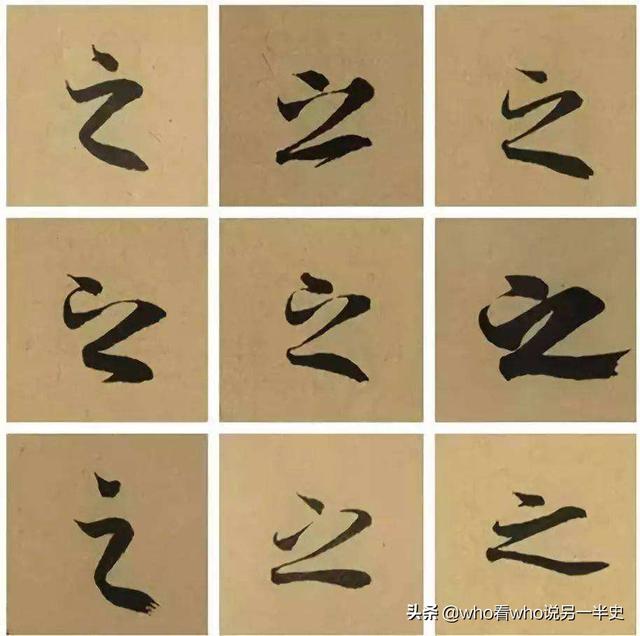 之 之 之
之 之 之
之 之 之
头条 @who看who说另一半史